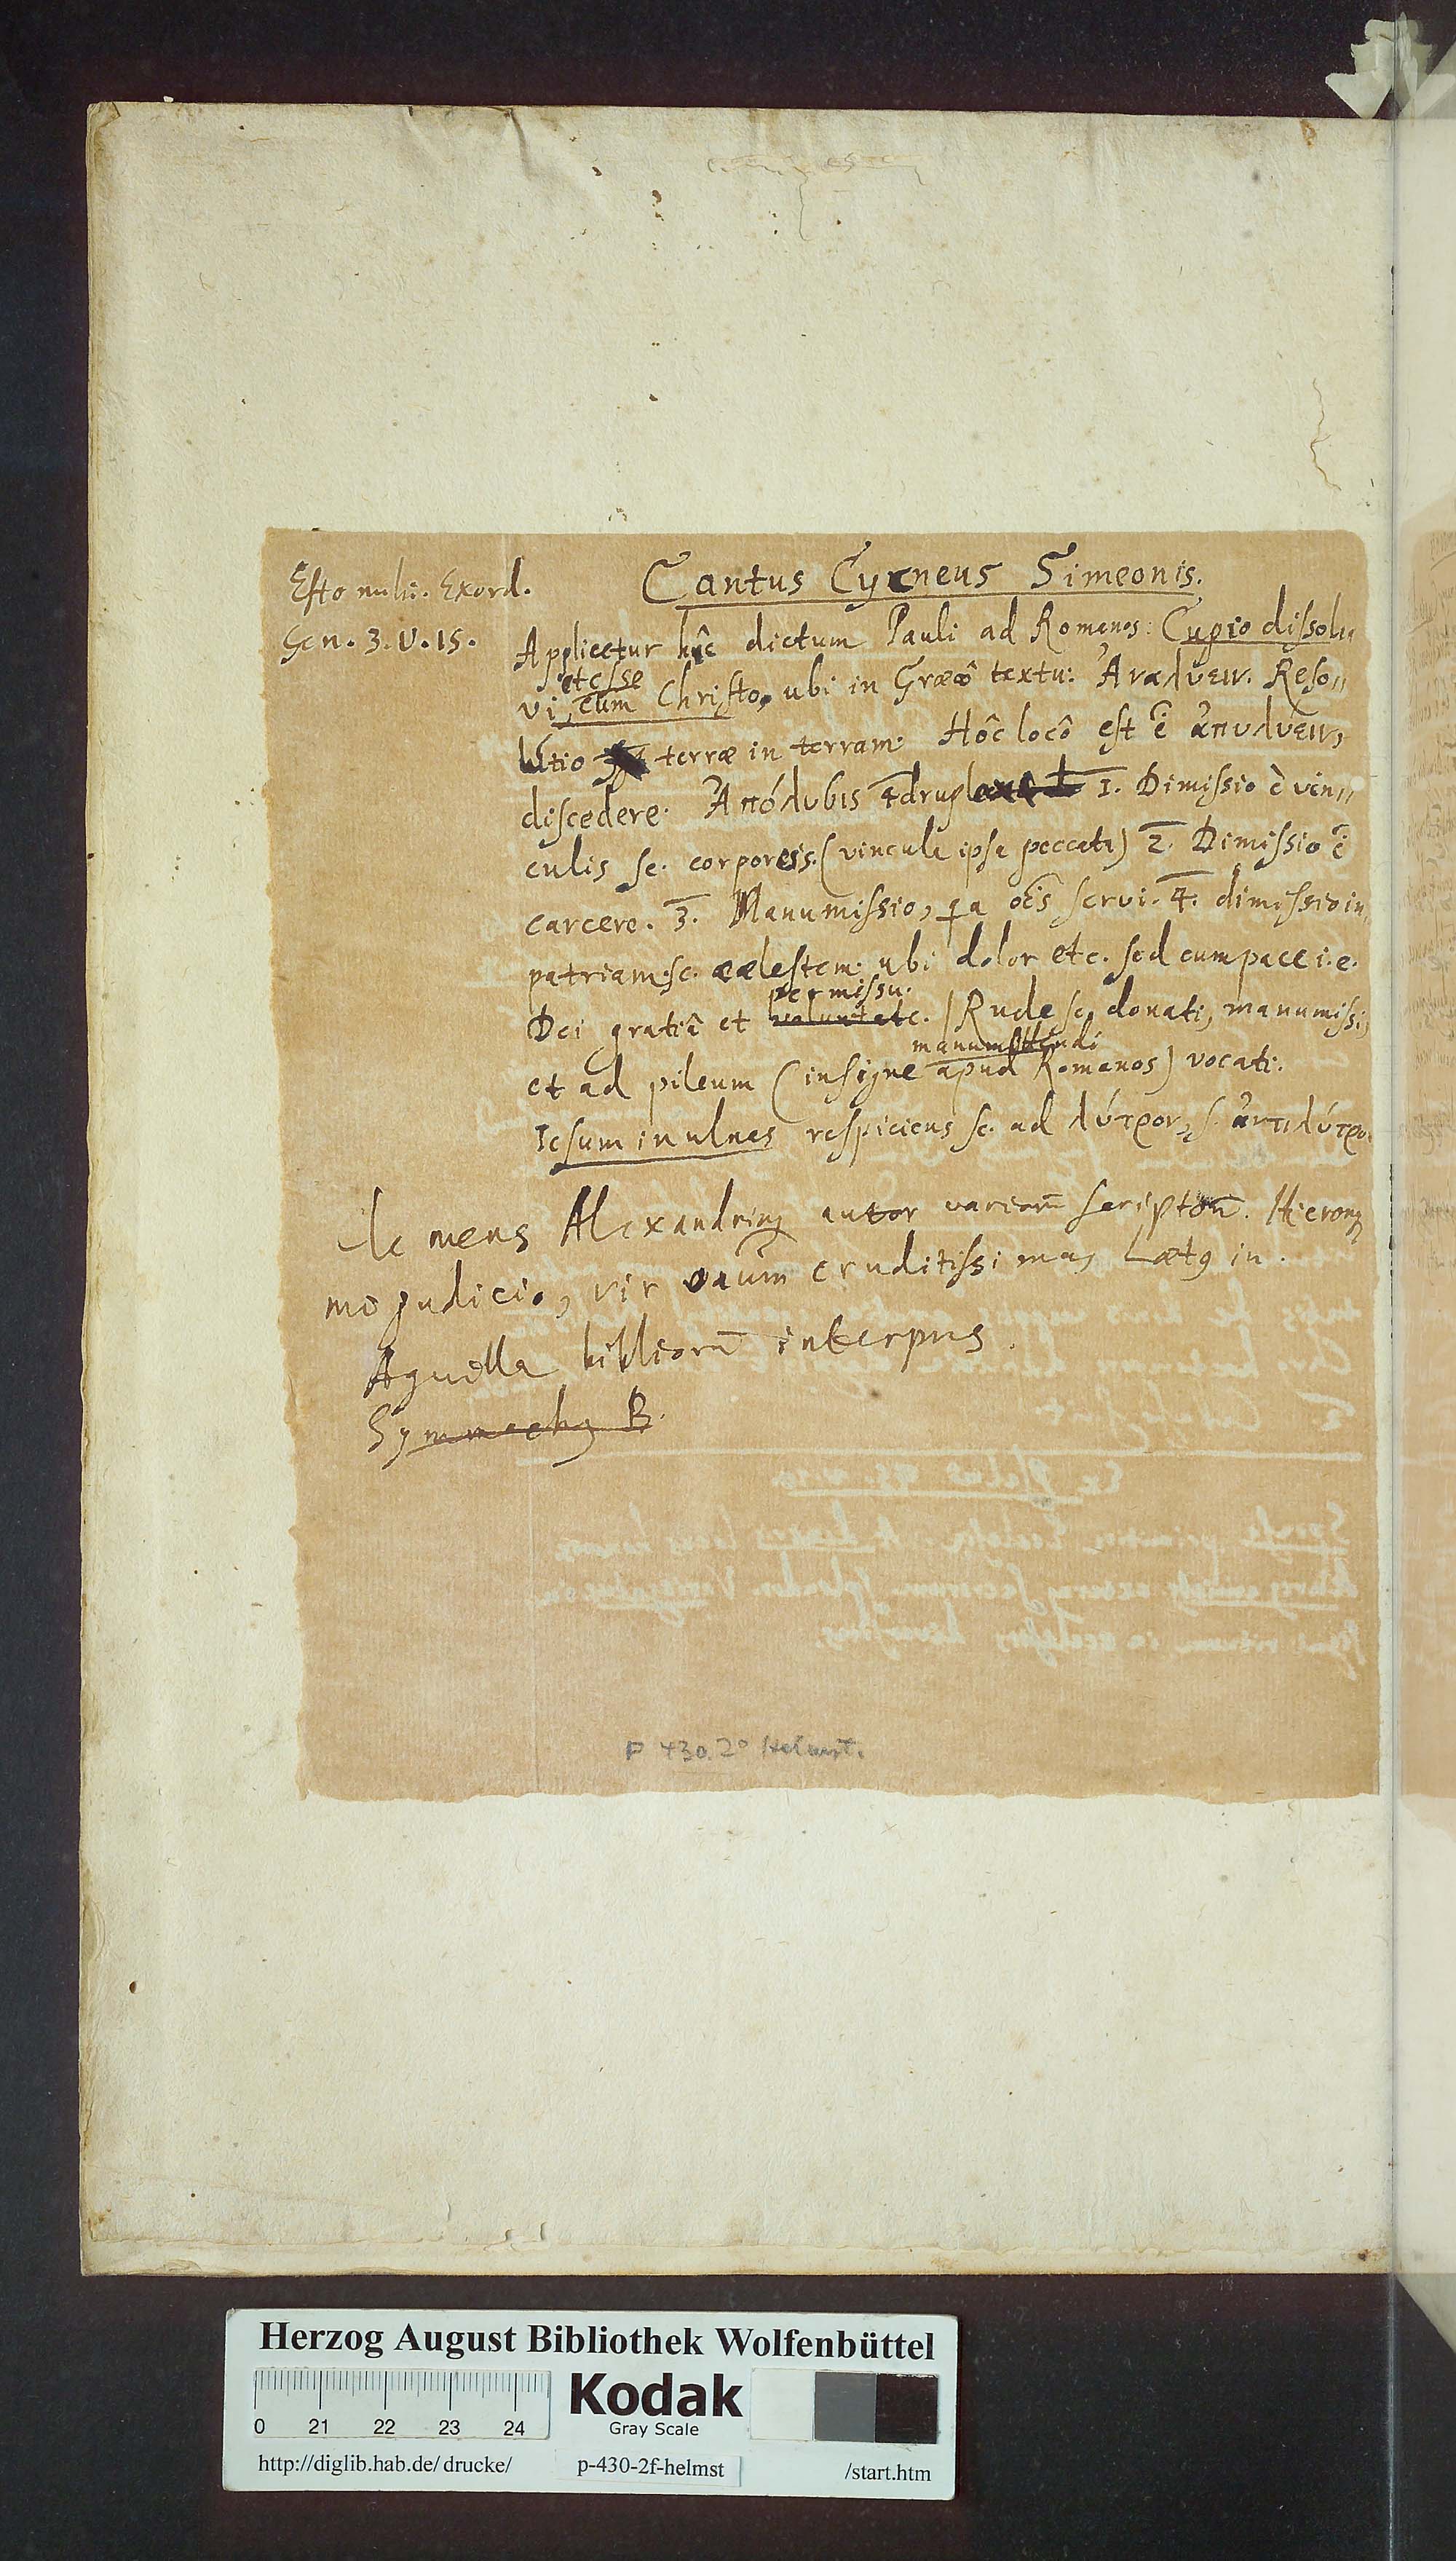 Esto mihi. Exord.
Gen. 3. V. 15.
Cantus Cycneus Simeonis.
Applicetur hûc dictum Pauli ad Romanos: Cupio dissolu
et esse
vi, cum Christo, ubi in Græcô textu: Ἀναλυειν. Reso„
lutio terræ in terram. Hôc locô est ἀπολυειν,
discedere. Ἀπόλυσις 4drupl 1. Dimissio è vin„
culis sc. corporeis. (vincula ipsa peccata) 2. Dimissio è
carcere. 3. Manumissio, qa servi. 4. dimissio in
patriam sc. cælestem. ubi dolor etc. sed cum pace i. e.
permissu.
Dei gratiâ et voluntate. / Rude sc. donati, manumissi,
manumittendi
et ad pileum (insigne apud Romanos) vocati.
Iesum in ulnas respiciens sc. ad λύτρον, s. ἀντιλύτρο
Clemens Alexandrinꝯ autor variorũ scriptorũ. Hierony
mo judicio, vir eruditissimus, Lætꝯ in.
Aquilla bibliorũ interpres.
Symmachꝯ B.
P 430. 2° Helmst.
Herzog August Bibliothek Wolfenbüttel
0 21 22 23 24
Kodak
Gray Scale
http://diglib.hab.de/drucke/ p-430-2f-helmst /start.htm